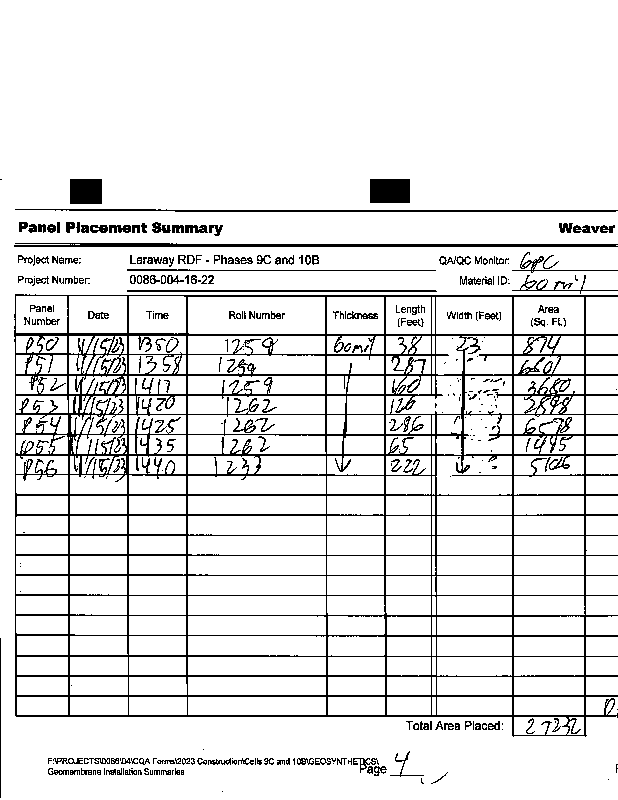 Panel Placement Summary Weaver
Project Name: Laraway RDF - Phases 9C and 10B QA/QC Monitor: GPC
Project Number: 0086-004-16-22 Material ID: 60 mil
Panel Number Date Time Roll Number Thickness Length (Feet) Width (Feet) Area (Sq. Ft.)
P50 11/15/23 1350 1259 60mil 38 23 874
P51 11/15/23 1358 1259 287 6601
P52 11/15/23 1417 1259 160 3680
P53 11/15/23 1420 1262 126 2898
P54 11/15/23 1425 1262 286 6578
P55 11/15/23 1435 1262 65 1495
P56 11/15/23 1440 1233 222 5106
Total Area Placed: 27232
F:\PROJECTS\0086\04\CQA Forms\2023 Construction\Cells 9C and 10B\GEOSYNTHETICS\
Geomembrane Installation Summaries Page 4